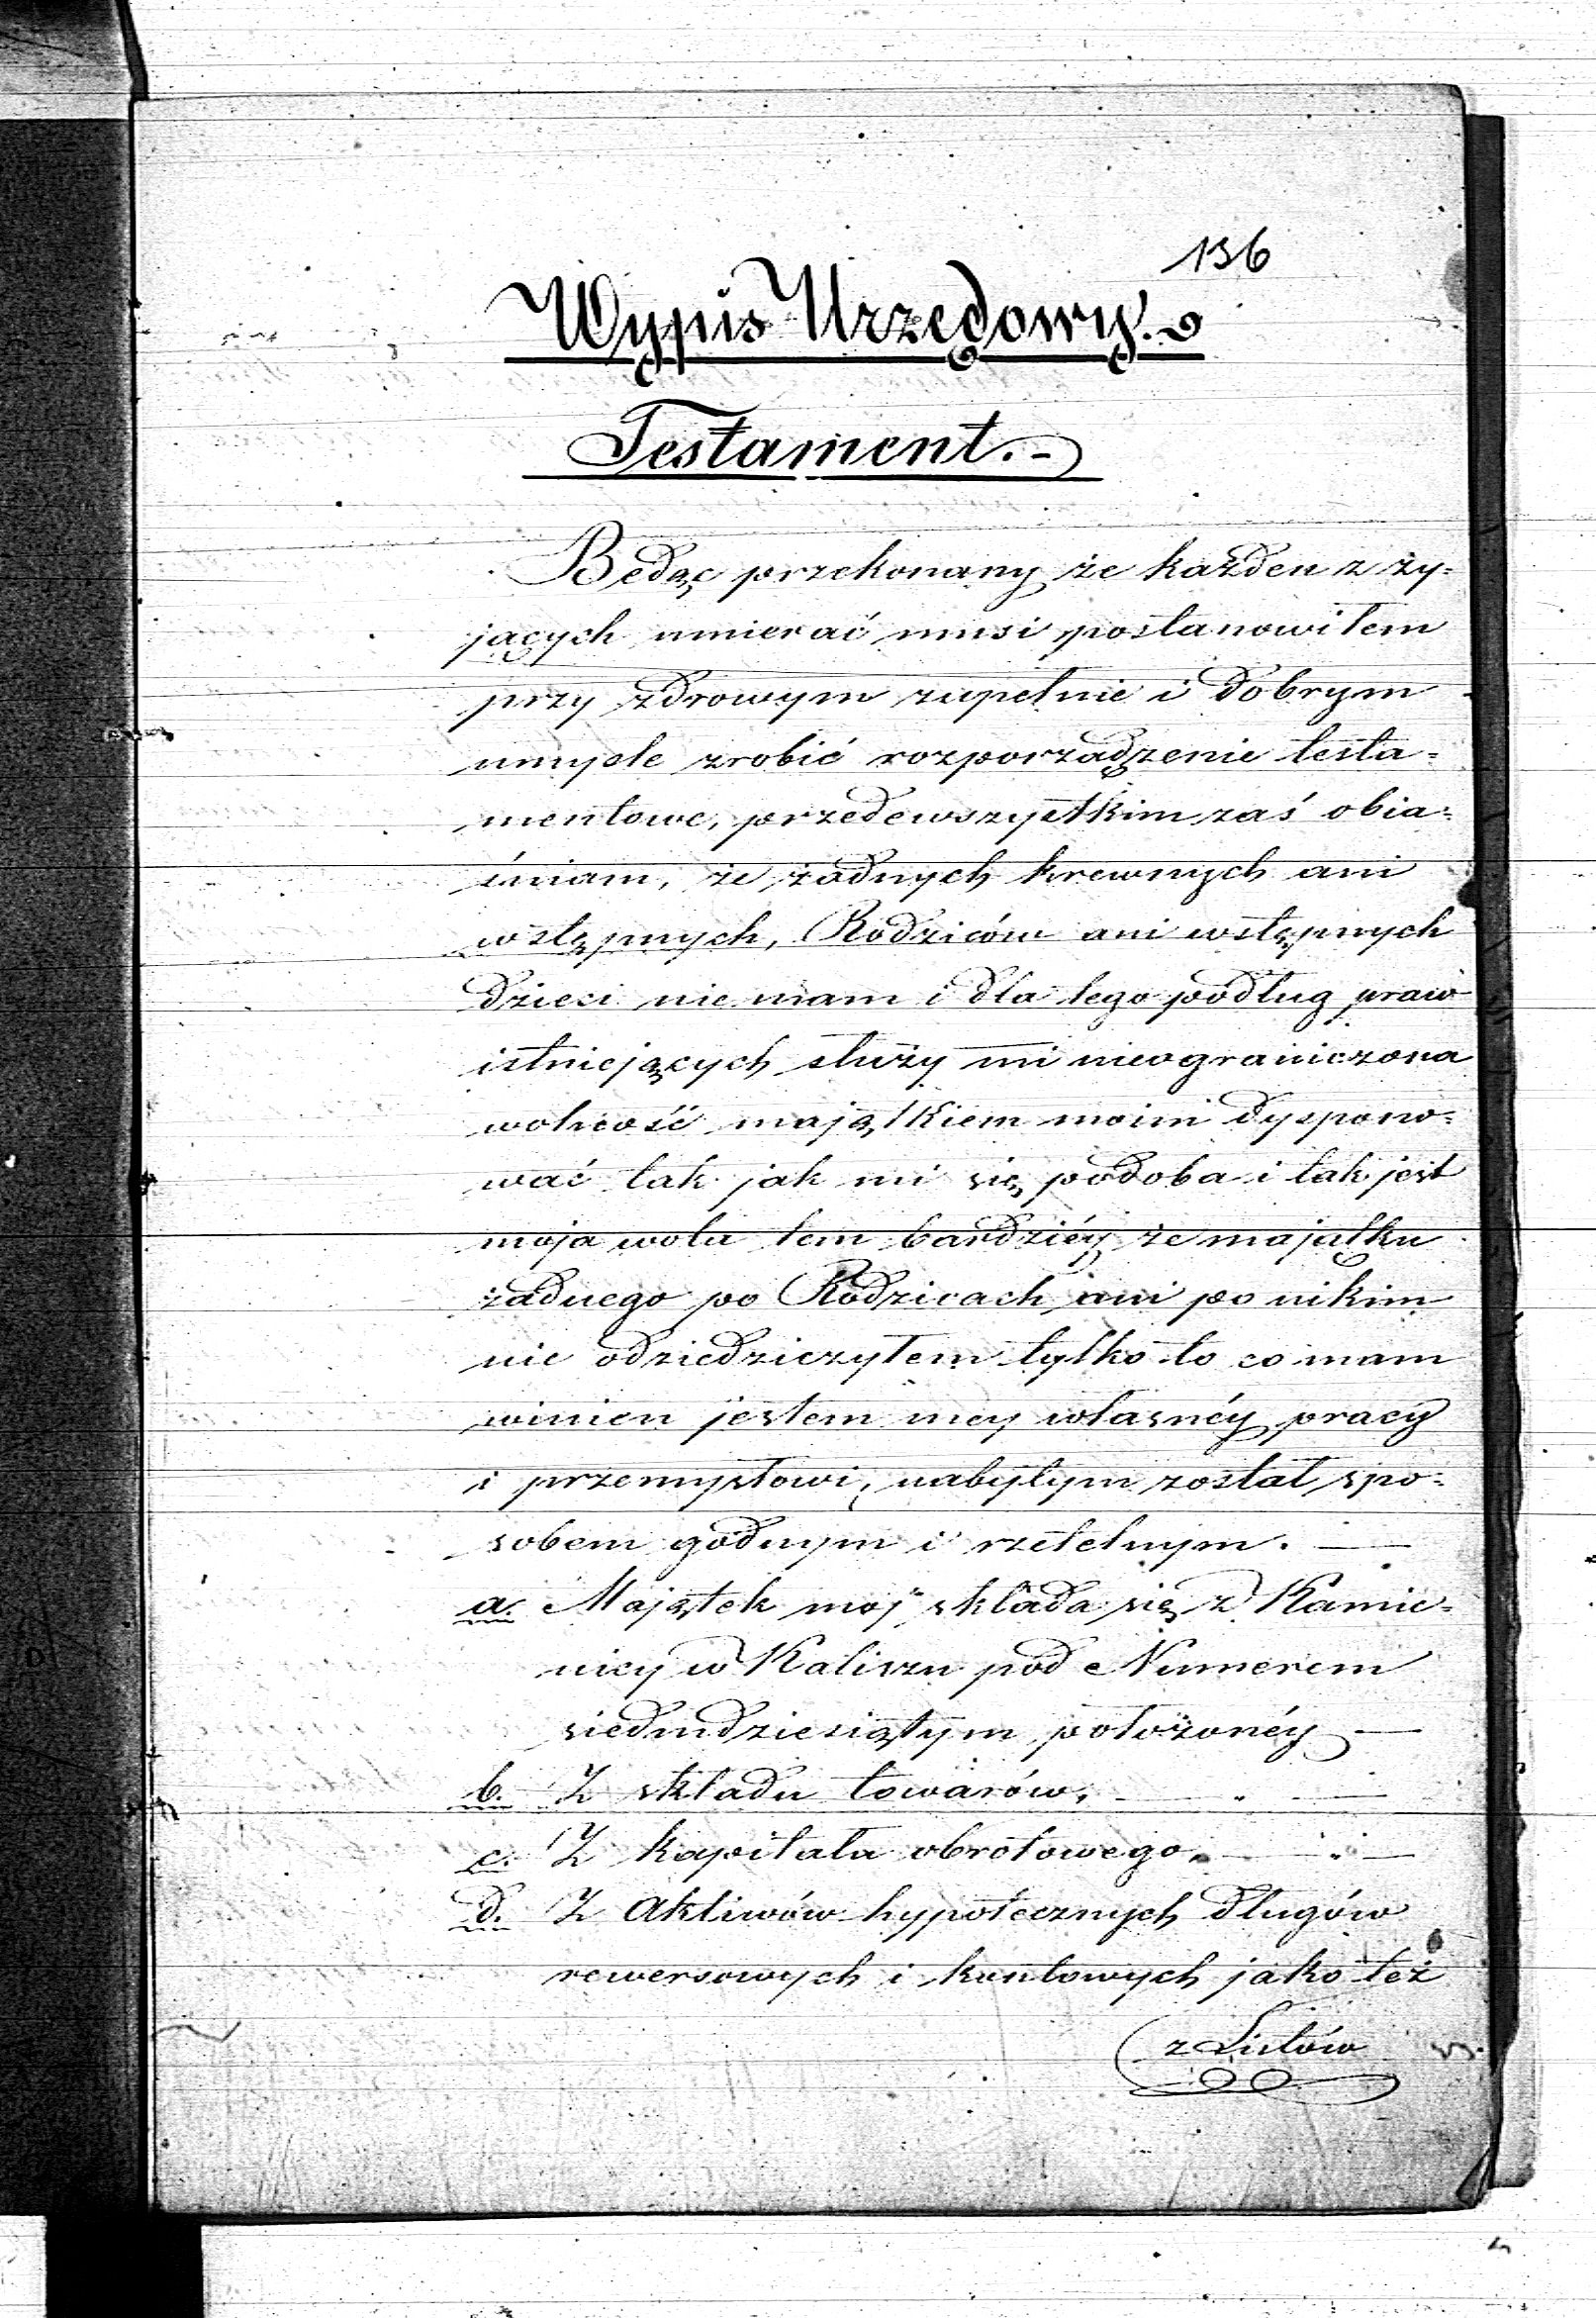 136
Wypis Urzędowy.
Testament.-
Będąc przekonany że każden z ży=
jących umierać musi postanowiłem
przy zdrowym zupełnie i dobrym
umyśle zrobić rozporządzenie testa=
mentowe, przedewszystkim zaś obia=
śniam, że żadnych krewnych ani
wstępnych, Rodziców ani wstępnych
dzieci nie mam i dla tego podług praw
istniejących służy mi nieograniczona
wolność majątkiem moim dyspono=
wać tak jak mi się podoba i tak jest
moja wola tem bardziéj że majątku
żadnego po Rodzicach ani po nikim
nie odziedziczyłem tylko to co mam
winien jestem mej własnéj pracy
i przemysłowi, nabytym został spo=
sobem godnym i rzetelnym. —
a. Majątek moj składa się z Kamie=
nicy w Kaliszu pod Numerem
siedmdziesiątym położonéj —
b. Z składu towarów, —
c. Z kapitału obrotowego, —
d. Z Aktiwów hypotecznych długów
rewersowych i kontowych jako też
z Listów